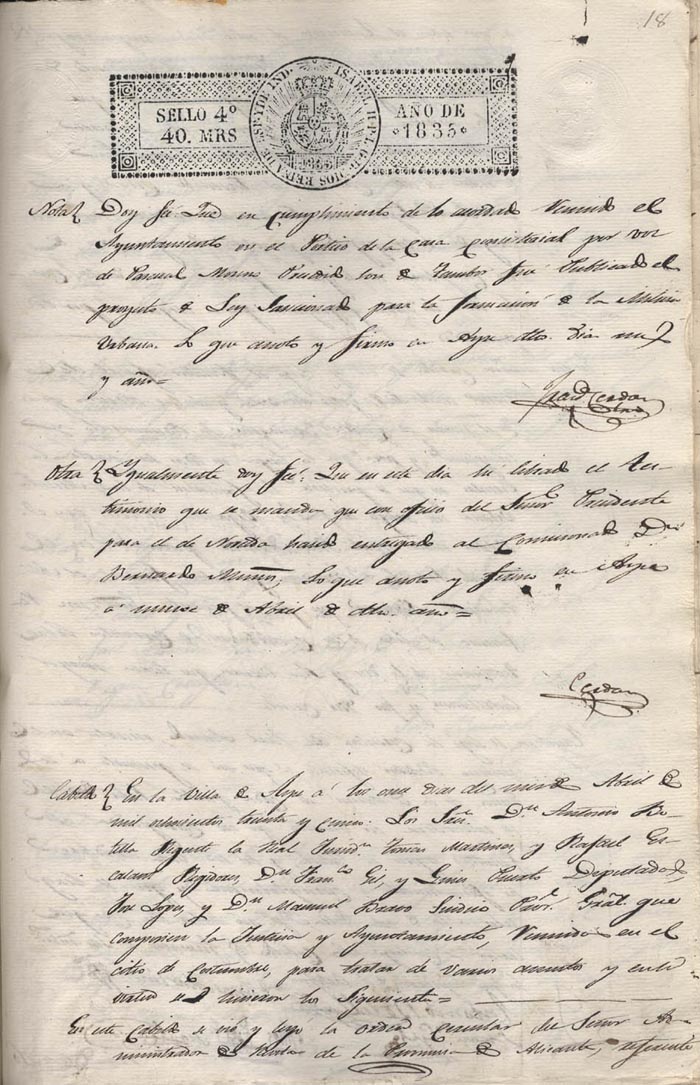 18
SELLO 4º
40. MRS
AÑO DE
1835
ISABEL II P.L.G. DE DIOS REYNA DE ESP. Y DE IND.
Nota Doy fé: Que en cumplimiento de lo acordado Reunido el
Ayuntamiento en el Portico de la Casa Consistorial por voz
de Pascual Moreno son de Tambor fue Publicado el
proyecto de Ley Sancionado para la formacion de la Milicia
Urbana. Lo que anoto y firmo en Aspe dho. dia mes
y año=
Cerdan
Otra Ygualmente doy fé: Que en este dia se librado el Tes-
timonio que se manda que con oficio del Señor Presidente
para el de Novelda entregado al Comisionado Dn.
Bernardo Muñoz; Lo que anoto y firmo en Aspe
á de Abril de dho. año=
Cerdan
Cabildo En la Villa de Aspe á los once dias del mes de Abril de
mil ochocientos treinta y cinco: Los Sres. Dn. Antonio Bo-
tella Regente la Real Jurisdn. Tomas Martinez, y Rafael Es-
calant Regidores, Dn. Franco. Gil, y Gines Diputados,
Jose Lopez, y Dn. Manuel Bravo Sindico Pror. Gral. que
componen la Justicia y Ayuntamiento, Reunidos en el
citio de Costumbre, para tratar de varios asuntos y en su
virtud se hicieron los Siguientes=
En este Cabildo se vió y leyo la orden circular del Señor Ad-
ministrador de Rentas de la Provincia de Alicante, referente